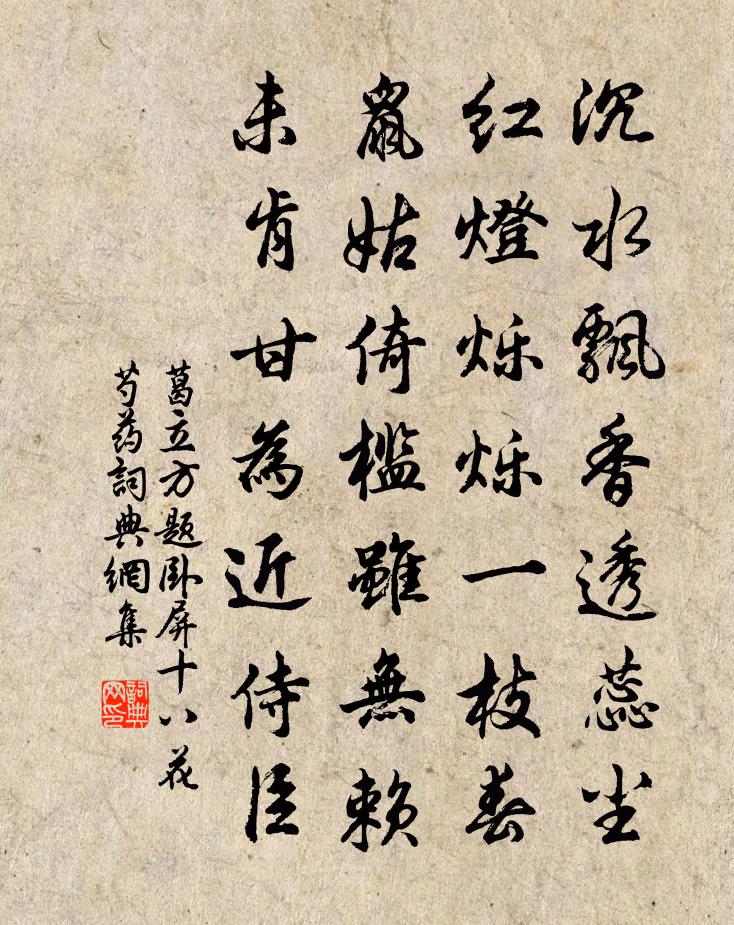 沉水飄香透蕊尘
红燈烁烁一枝春
鼠姑倚槛雖無赖
未肯甘為近侍臣
葛立方题卧屏十八花
芍药詞典網集
詞典网印